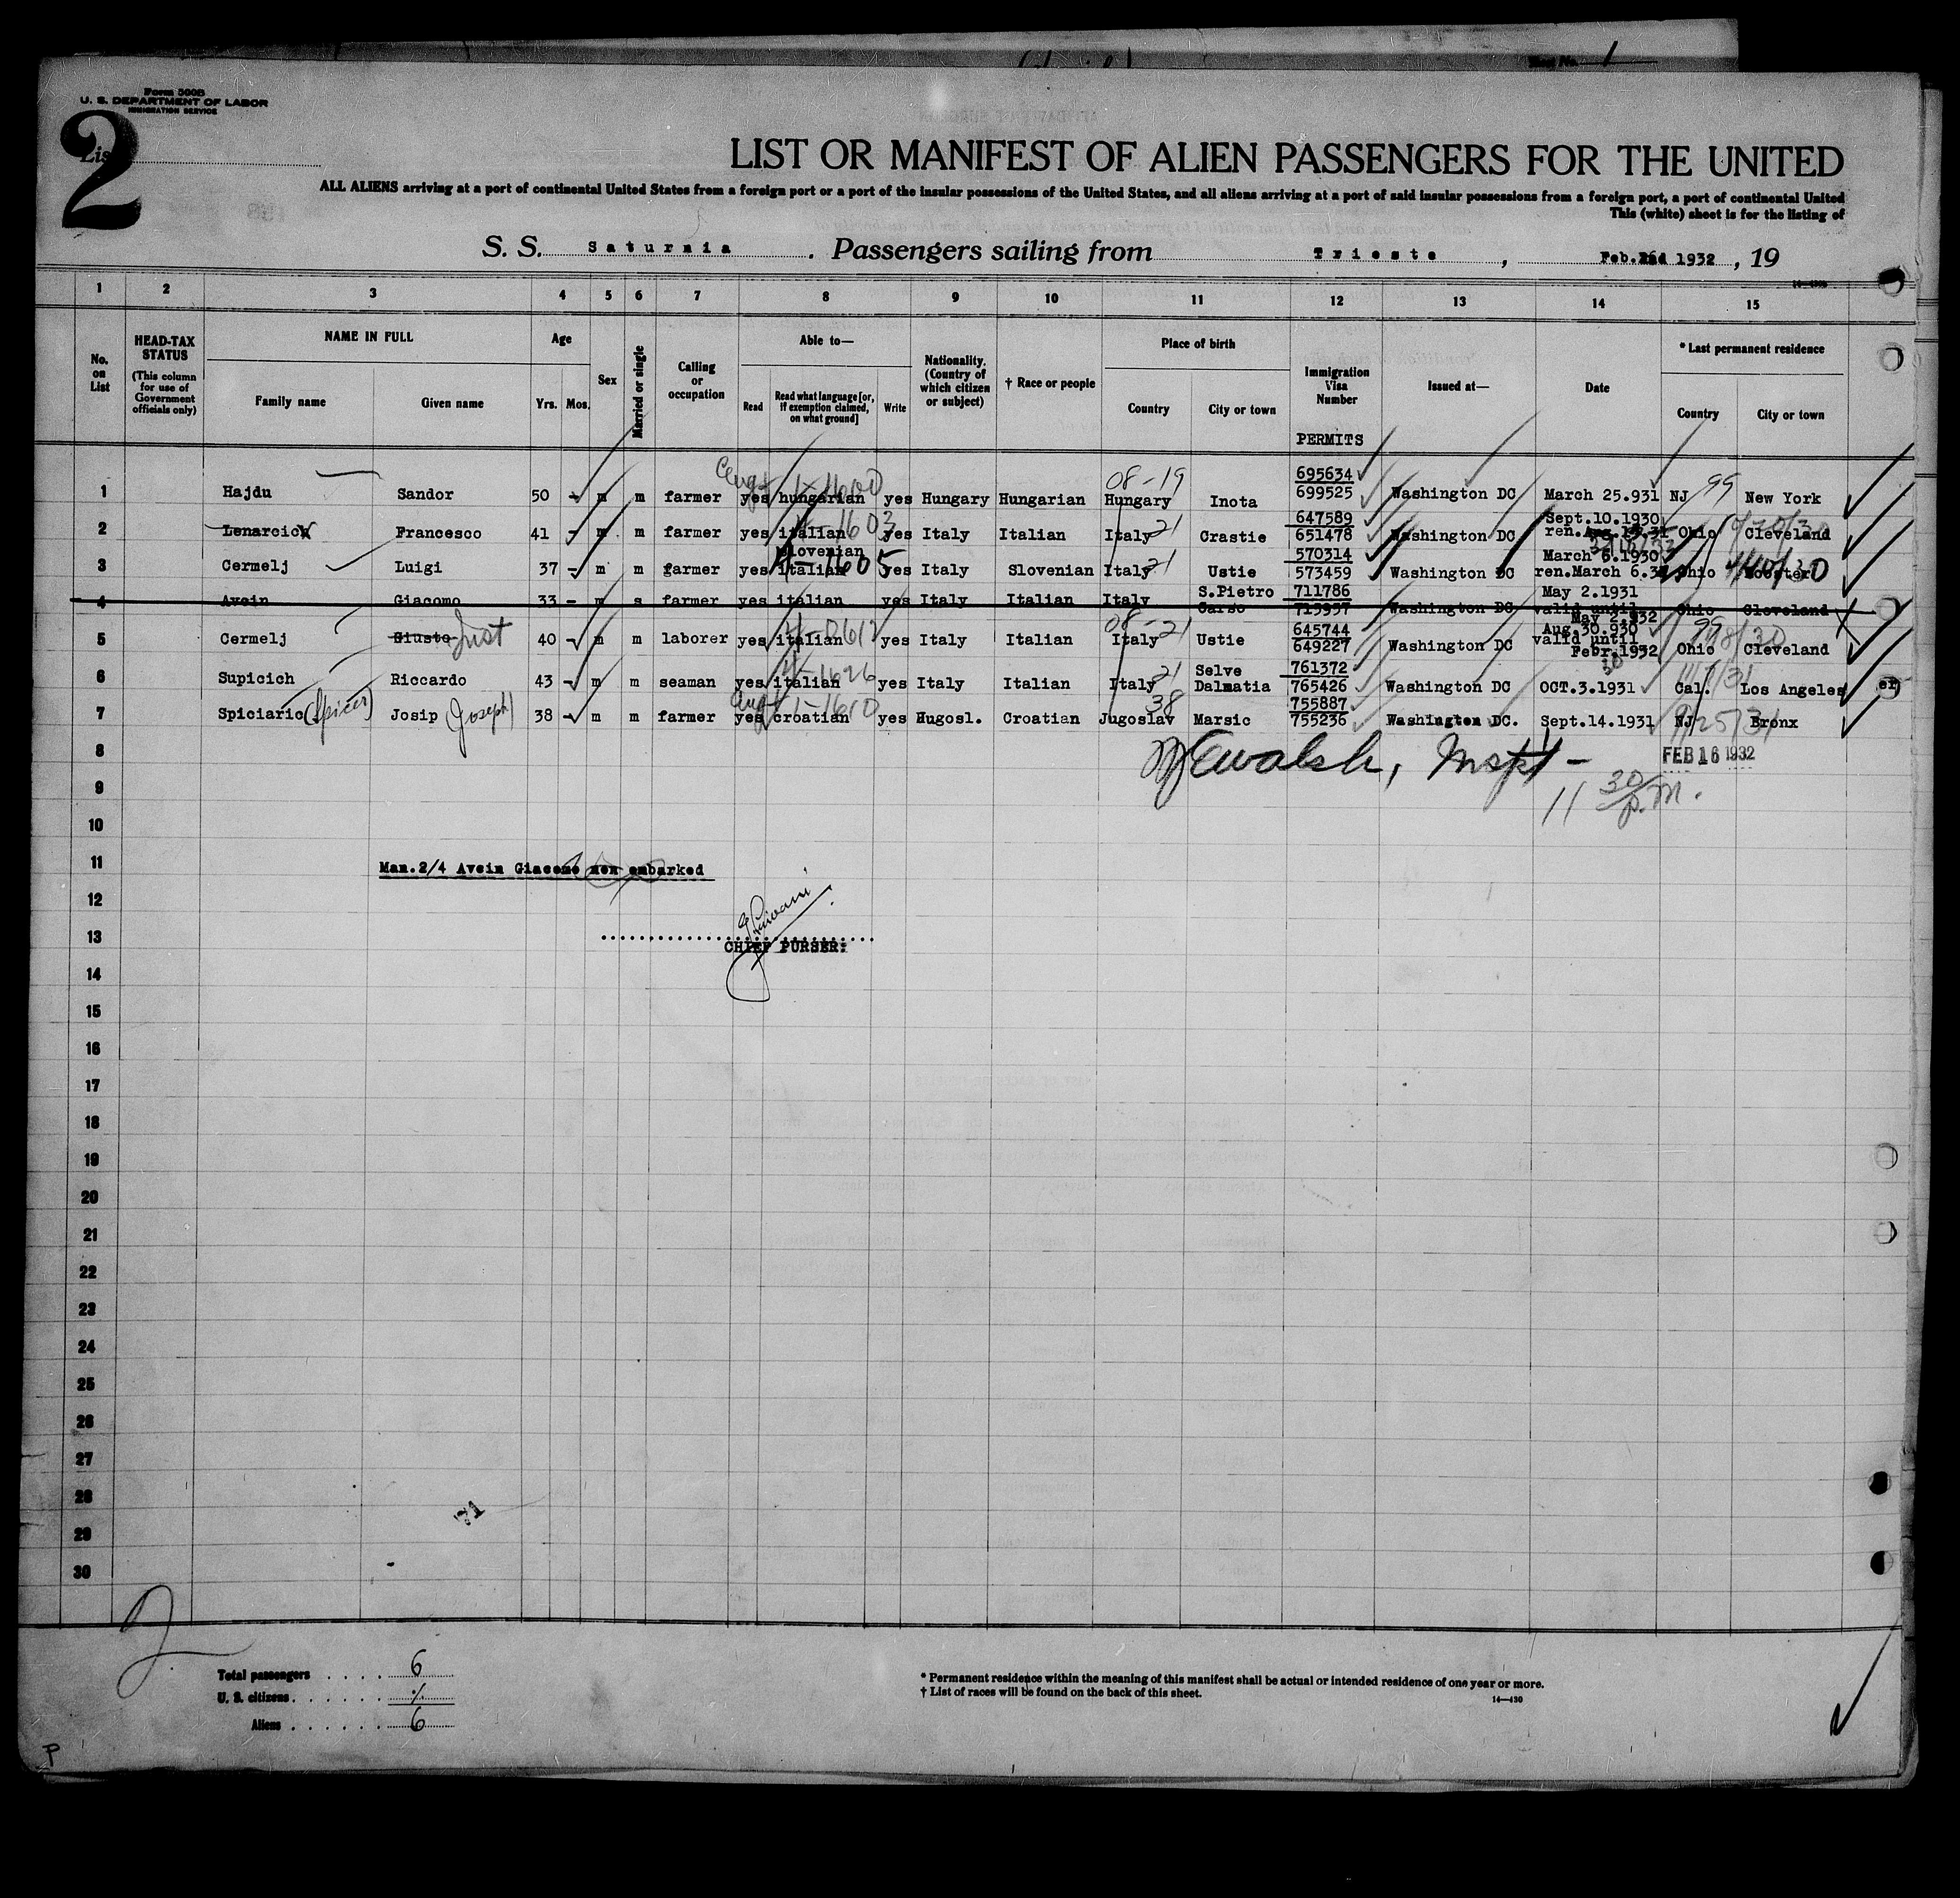 Form 500B
U. S. DEPARTMENT OF LABOR
IMMIGRATION SERVICE
2
LIST OR MANIFEST OF ALIEN PASSENGERS FOR THE UNITED
ALL ALIENS arriving at a port of continental United States from a foreign port or a port of the insular possessions of the United States, and all aliens arriving at a port of said insular possessions from a foreign port, a port of continental United
This (white) sheet is for the listing of
S. S. Saturnia. Passengers sailing from Trieste, Feb. 1932, 19
1 2 3 4 5 6 7 8 9 10 11 12 13 14 15
No. on List
HEAD-TAX STATUS (This column for use of Government officials only)
NAME IN FULL Family name Given name
Age Yrs. Mos.
Sex
Married or single
Calling or occupation
Able to— Read Read what language [or, if exemption claimed, on what ground] Write
Nationality. (Country of which citizen or subject)
† Race or people
Place of birth Country City or town
Immigration Visa Number
PERMITS
Issued at—
Date
* Last permanent residence Country City or town
1 Hajdu Sandor 50 - m m farmer yes hungarian yes Hungary Hungarian Hungary 08-19 Inota 695634 699525 Washington DC March 25.931 NJ 99 New York
2 Lenarcick Francesco 41 - m m farmer yes italian yes Italy Italian Italy 21 Crastie 647589 651478 Washington DC Sept.10.1930 Ohio Cleveland
3 Cermelj Luigi 37 - m m farmer yes slovenian italian yes Italy Slovenian Italy 21 Ustie 570314 573459 Washington DC March 6.1930 ren.March 6.3 Ohio
4 Avcin Giacomo 33 - m s farmer yes italian yes Italy Italian Italy S.Pietro Carso 711786 715957 Washington DC May 2.1931 valid until May 2.932 Ohio Cleveland
5 Cermelj Giusto Just 40 - m m laborer yes italian yes Italy Italian Italy 08-21 Ustie 645744 649227 Washington DC Aug.30.930 valid until Febr.1932 Ohio 99 Cleveland
6 Supicich Riccardo 43 - m m seaman yes italian yes Italy Italian Italy 21 Selve Dalmatia 761372 765426 Washington DC OCT.3.1931 Cal. Los Angeles
7 Spiciario (Spicer) Josip (Joseph) 38 - m m farmer yes croatian yes Hugosl. Croatian Jugoslav 38 Marsic 755887 755236 Washington DC. Sept.14.1931 NJ 9/25/31 Bronx
8 Walsh, Inspt - FEB 16 1932
9 11 30/p.m.
10
11 Man.2/4 Avcin Giacomo non embarked
12
13 CHIEF PURSER:
14
15
16
17
18
19
20
21
22
23
24
25
26
27
28 71
29
30
2
Total passengers . . . . 6
U. S. citizens . . . . . .
Aliens . . . . . . 6
* Permanent residence within the meaning of this manifest shall be actual or intended residence of one year or more.
† List of races will be found on the back of this sheet.
14—430
P